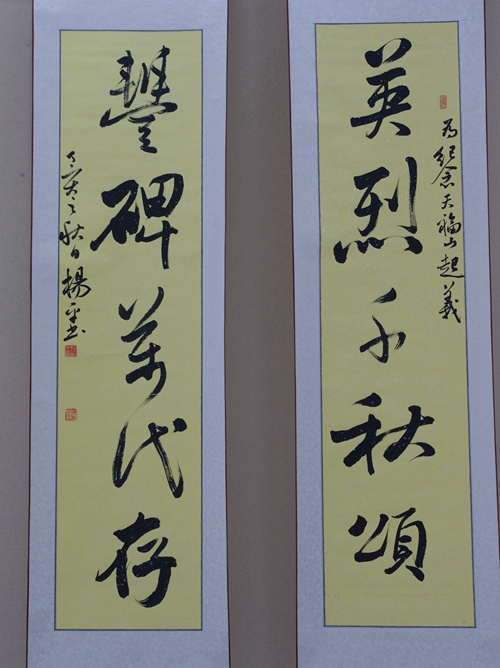 英烈千秋頌
为紀念天福山起義
豐碑萬代存
之秋日楊